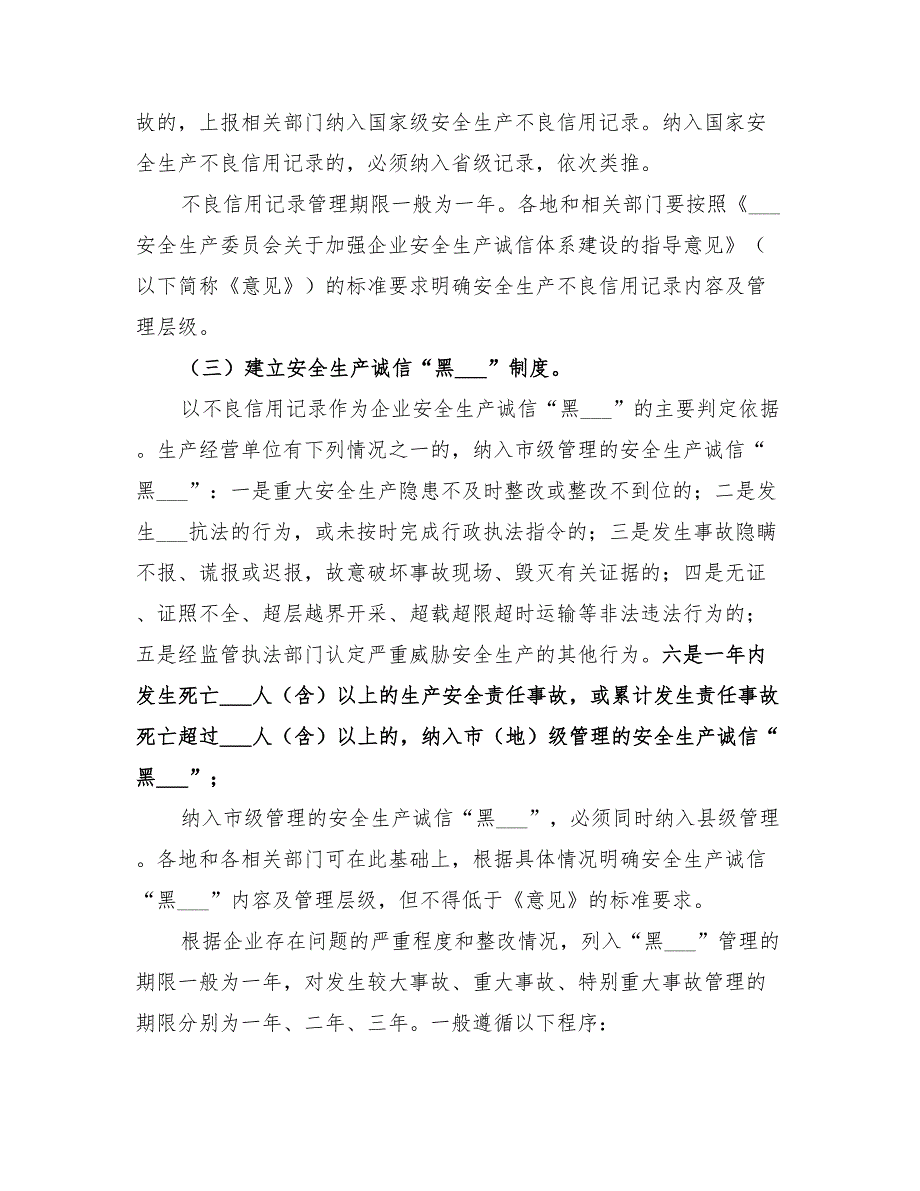 故的，上报相关部门纳入国家级安全生产不良信用记录。纳入国家安
全生产不良信用记录的，必须纳入省级记录，依次类推。
不良信用记录管理期限一般为一年。各地和相关部门要按照《___
安全生产委员会关于加强企业安全生产诚信体系建设的指导意见》（
以下简称《意见》）的标准要求明确安全生产不良信用记录内容及管
理层级。
（三）建立安全生产诚信“黑___”制度。
以不良信用记录作为企业安全生产诚信“黑___”的主要判定依据
。生产经营单位有下列情况之一的，纳入市级管理的安全生产诚信“
黑___”：一是重大安全生产隐患不及时整改或整改不到位的；二是发
生___抗法的行为，或未按时完成行政执法指令的；三是发生事故隐瞒
不报、谎报或迟报，故意破坏事故现场、毁灭有关证据的；四是无证
、证照不全、超层越界开采、超载超限超时运输等非法违法行为的；
五是经监管执法部门认定严重威胁安全生产的其他行为。六是一年内
发生死亡___人（含）以上的生产安全责任事故，或累计发生责任事故
死亡超过___人（含）以上的，纳入市（地）级管理的安全生产诚信“
黑___”；
纳入市级管理的安全生产诚信“黑___”，必须同时纳入县级管理
。各地和各相关部门可在此基础上，根据具体情况明确安全生产诚信
“黑___”内容及管理层级，但不得低于《意见》的标准要求。
根据企业存在问题的严重程度和整改情况，列入“黑___”管理的
期限一般为一年，对发生较大事故、重大事故、特别重大事故管理的
期限分别为一年、二年、三年。一般遵循以下程序：